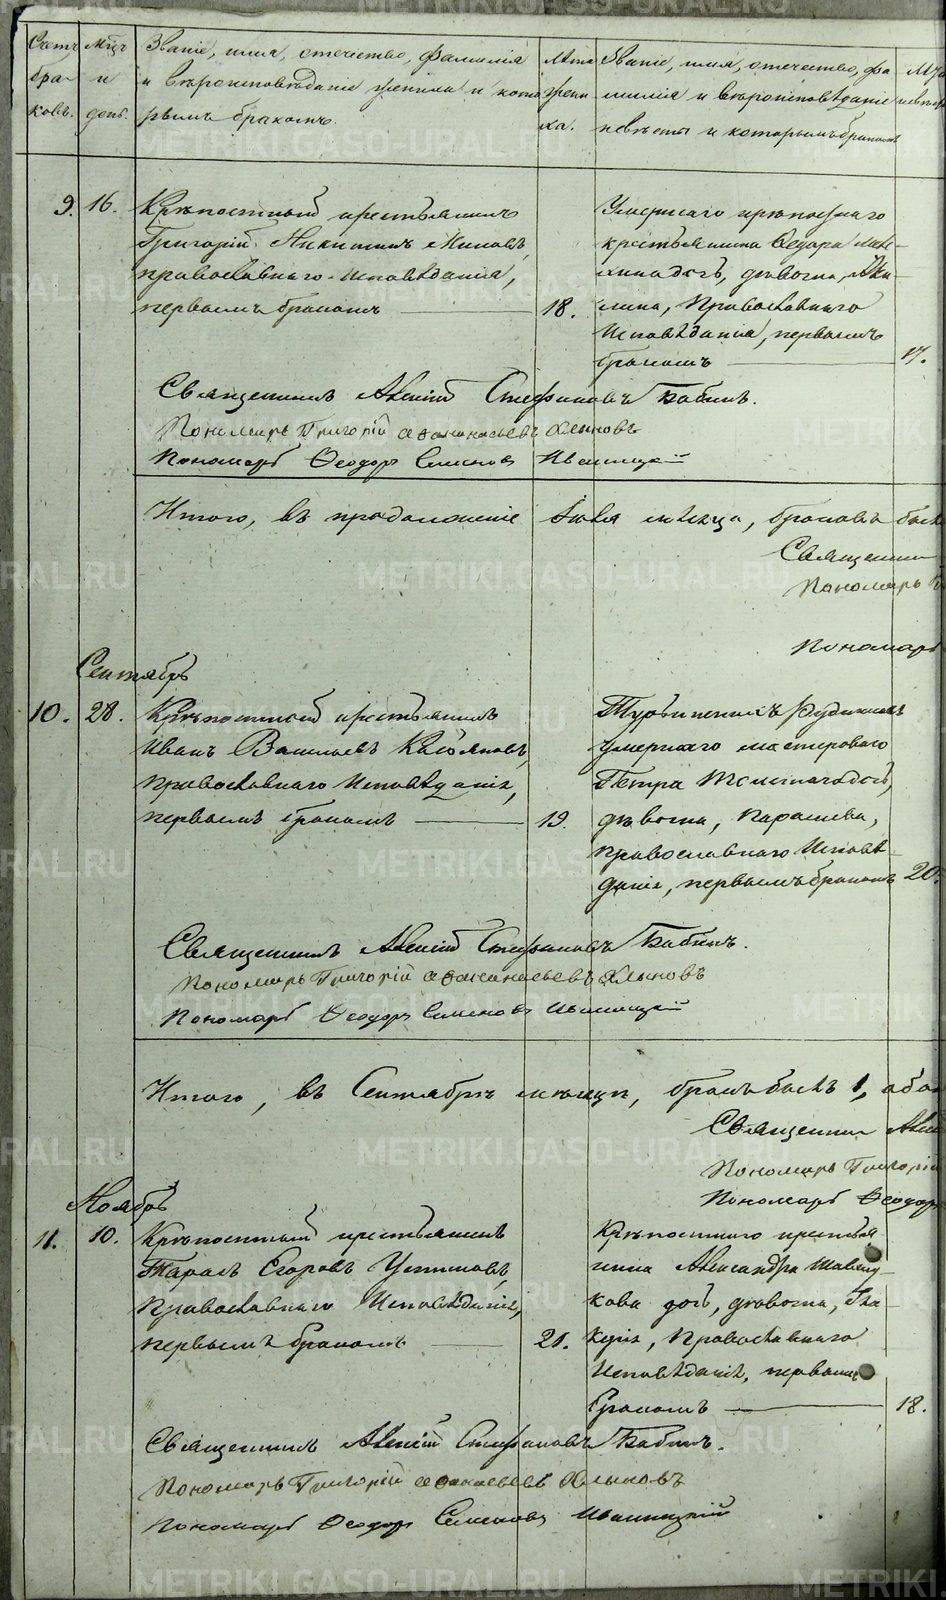 Счетъ бра-ковъ.
Мцъ и день.
Званіе, имя, отечество, фамилія
и вѣроисповѣданіе жениха и кото
рымъ бракомъ.
Лѣта жениха.
Званіе, имя, отечество, фа
милія и вѣроисповѣданіе
невѣсты и которымъ бракомъ
9. 16. Крѣпостный крестьянинъ
Григорій Никитинъ
православнаго исповѣданія,
первымъ бракомъ 18.
Умершаго крѣпостнаго
крестьянина Ѳедора
дочь, дѣвица, Аку-
лина, Православнаго
Исповѣданія, первымъ
бракомъ 17.
Священникъ Алексій Стефановъ Бабинъ.
Пономарь Григорій Аѳанасьевъ Хлыновъ
Пономарь Ѳеодоръ Семеновъ Иваницкій
Итого, въ продолженіе Іюля мѣсяца, браковъ было
Священни
Пономарь
Пономарь
Сентябрь
10. 28. Крѣпостной крестьянинъ
Иванъ Васильевъ
Православнаго Исповѣданія,
первымъ бракомъ 19.
умершаго мастероваго
Петра дочь,
дѣвица, Параскева,
православнаго Исповѣ-
данія, первымъ бракомъ 20.
Священникъ Алексій Стефановъ Бабинъ.
Пономарь Григорій Аѳанасьевъ Хлыновъ
Пономарь Ѳеодоръ Семеновъ Иваницкій
Итого, въ Сентябрѣ мѣсяцѣ, бракъ былъ 1, обо
Священни Алек
Пономарь Григорій
Пономарь Ѳеодоръ
Ноябрь
11. 10. Крѣпостный крестьянинъ
Тарасъ Егоровъ Устиновъ,
Православнаго Исповѣданія,
первымъ бракомъ 21.
Крѣпостнаго крестья
нина Александра
кова дочь, дѣвица,
Православнаго
Исповѣданія, первымъ
бракомъ 18.
Священникъ Алексій Стефановъ Бабинъ.
Пономарь Григорій Аѳанасьевъ Хлыновъ
Пономарь Ѳеодоръ Семеновъ Иваницкій
METRIKI.GASO-URAL.RU